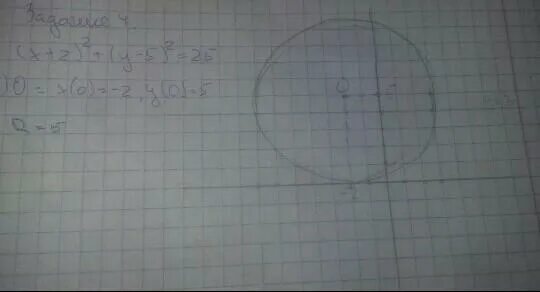 Задание 4
(x+2)²+(y-5)²=25
) O = x(0)=-2, y(0)=5
R=5
O
5
-2